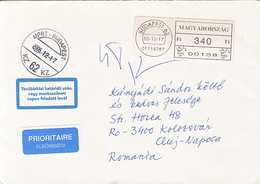 MPRT-BUDAPEST
62 KZ
BUDAPEST 62
MAGYARORSZÁG
Ft 340 Ft
00138
Továbbítási határidő után,
vagy munkaszüneti
napon feladott levél
PRIORITAIRE
ELSŐBBSÉGI
Kányádi Sándor költő
és kedves felesége
Str. Horea 48
Ro-3400 Kolozsvár
Cluj-Napoca
Romania